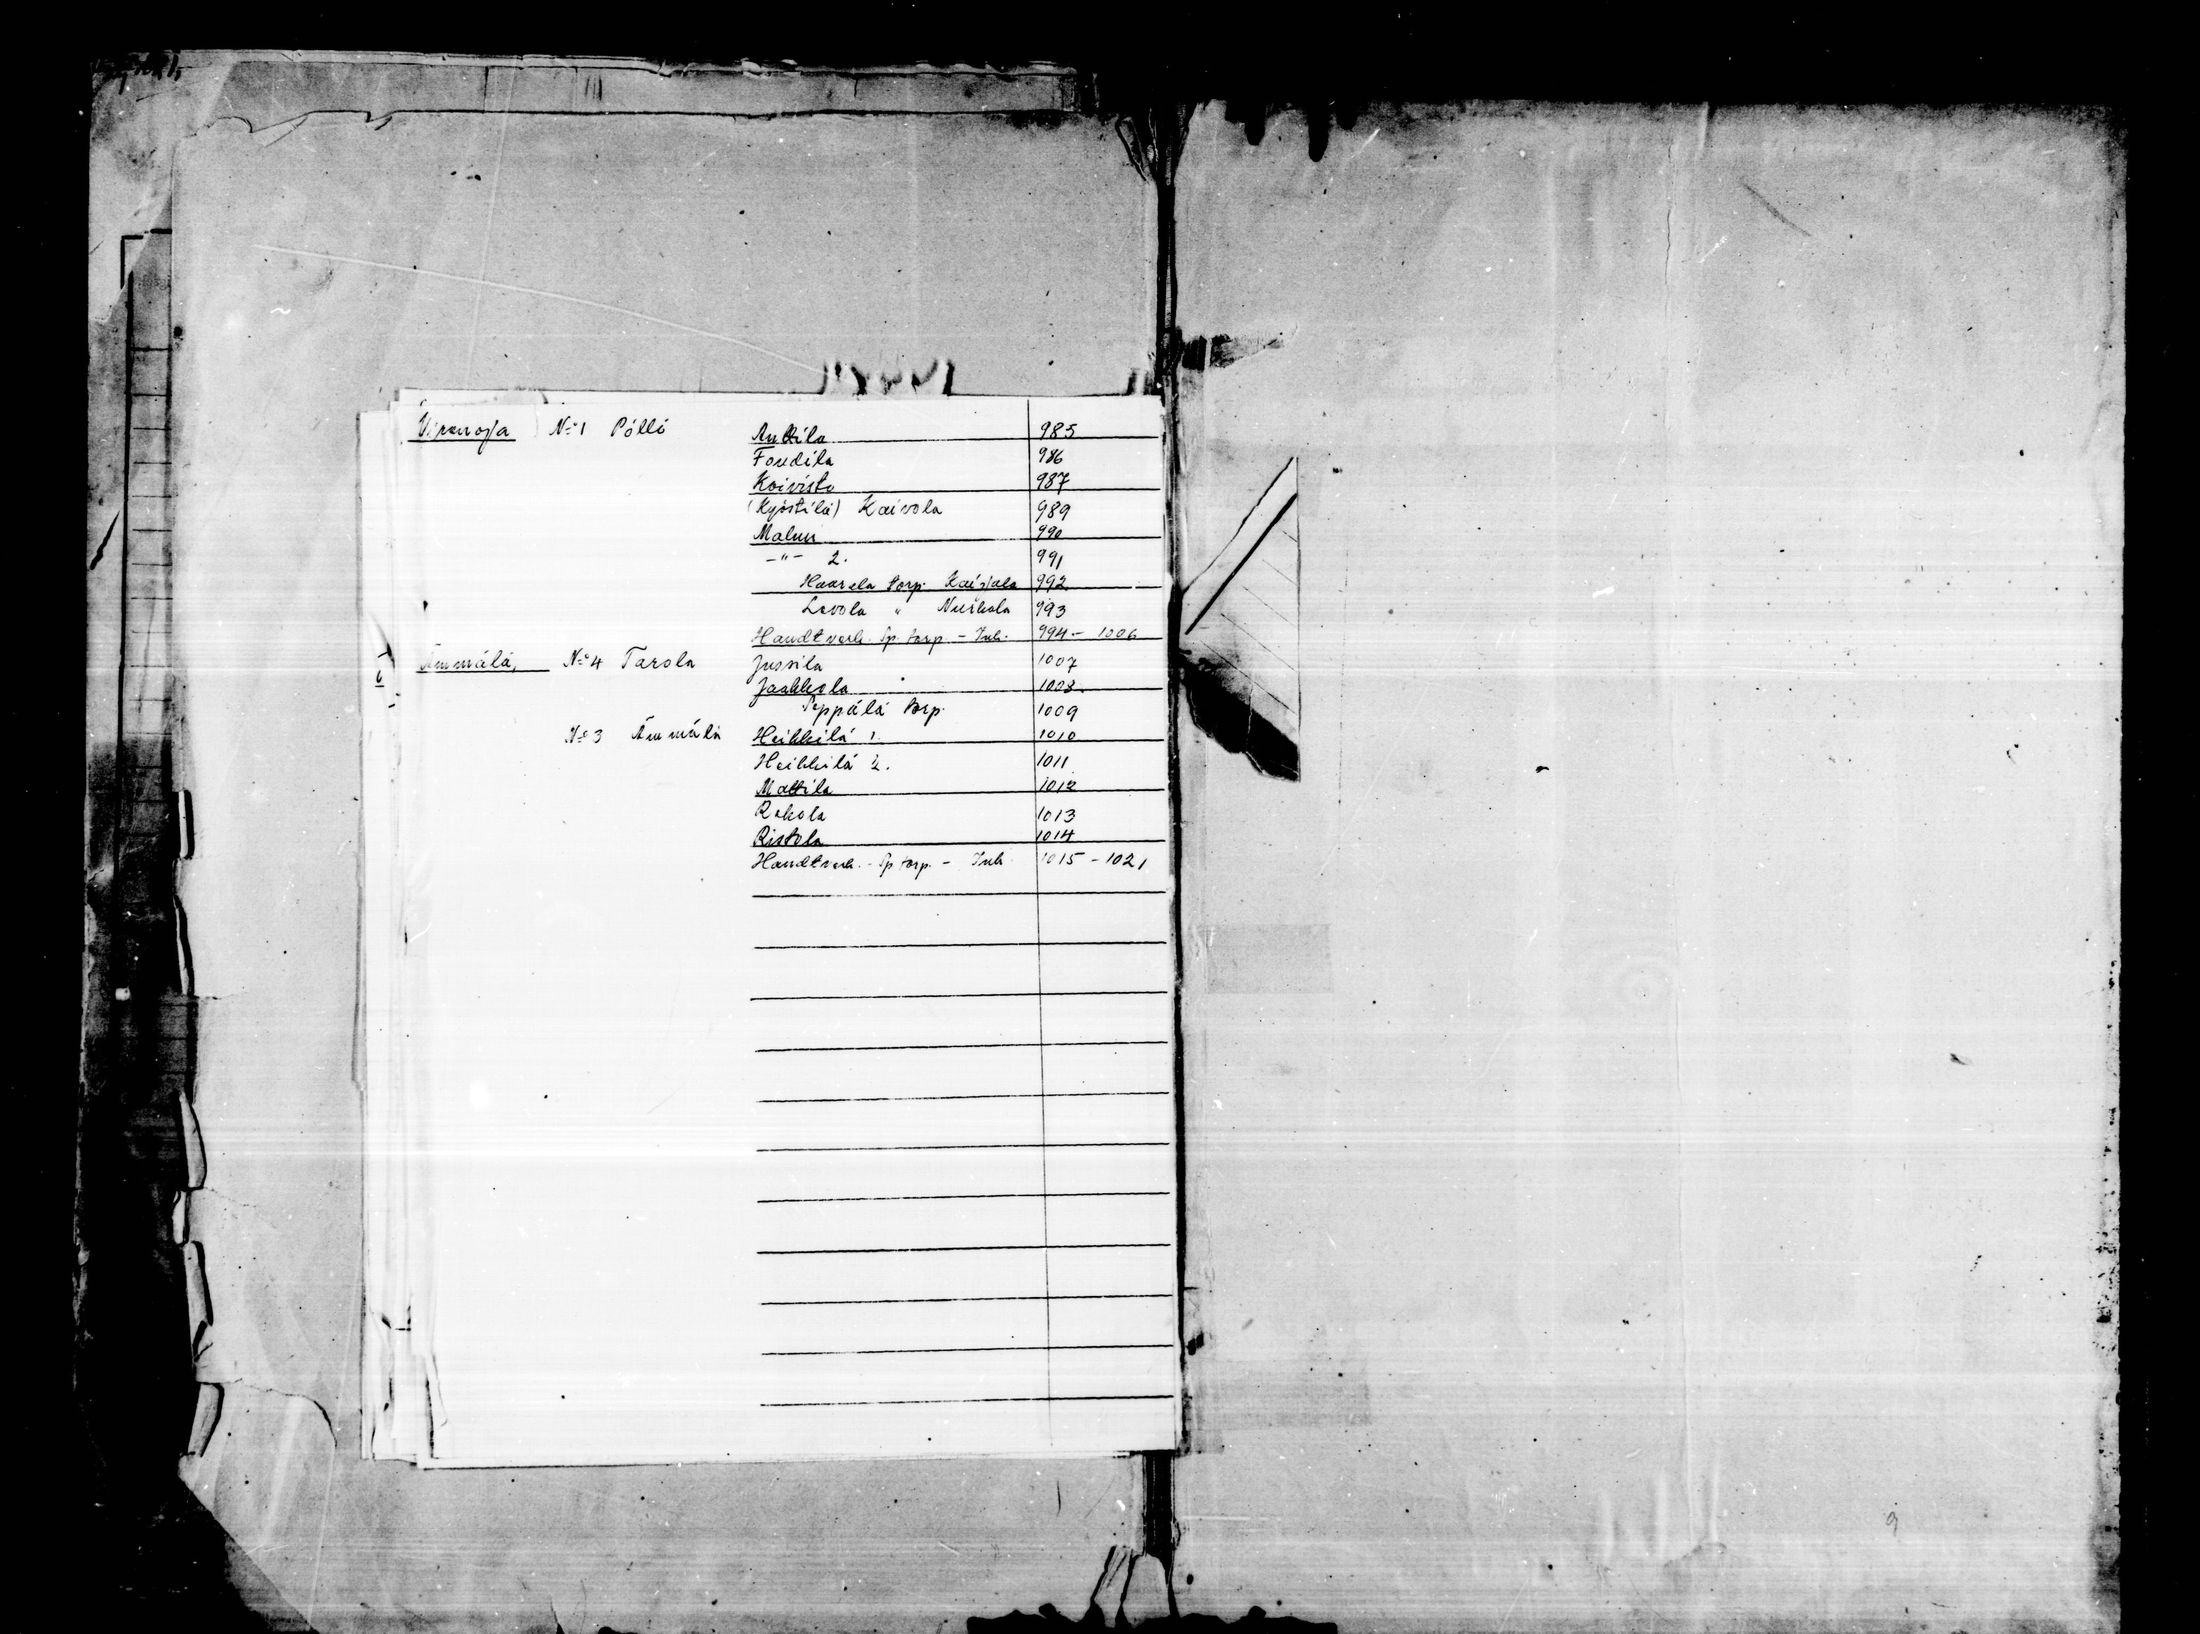 Viperoja № 1 Pöllö Anttila 985
Fondila 986
Koivisto 987
(Kyöstilä) Kaivola 989
Malmi 990
-"- 2. 991
Haarela torp. 992
Lavola " Nuihala 993
Handtverk. Sp. torp. - Inh. 994 - 1006
Ämmälä, № 4 Tarola Jussila 1007
Jaakkola 1008
Seppälä torp. 1009
№ 3 Ämmälä Heikkilä 1. 1010
Heikkilä 2. 1011
Mattila 1012
Rekola 1013
Ristola 1014
Handtverk. - Sp torp. - Inh. 1015 - 1021
9